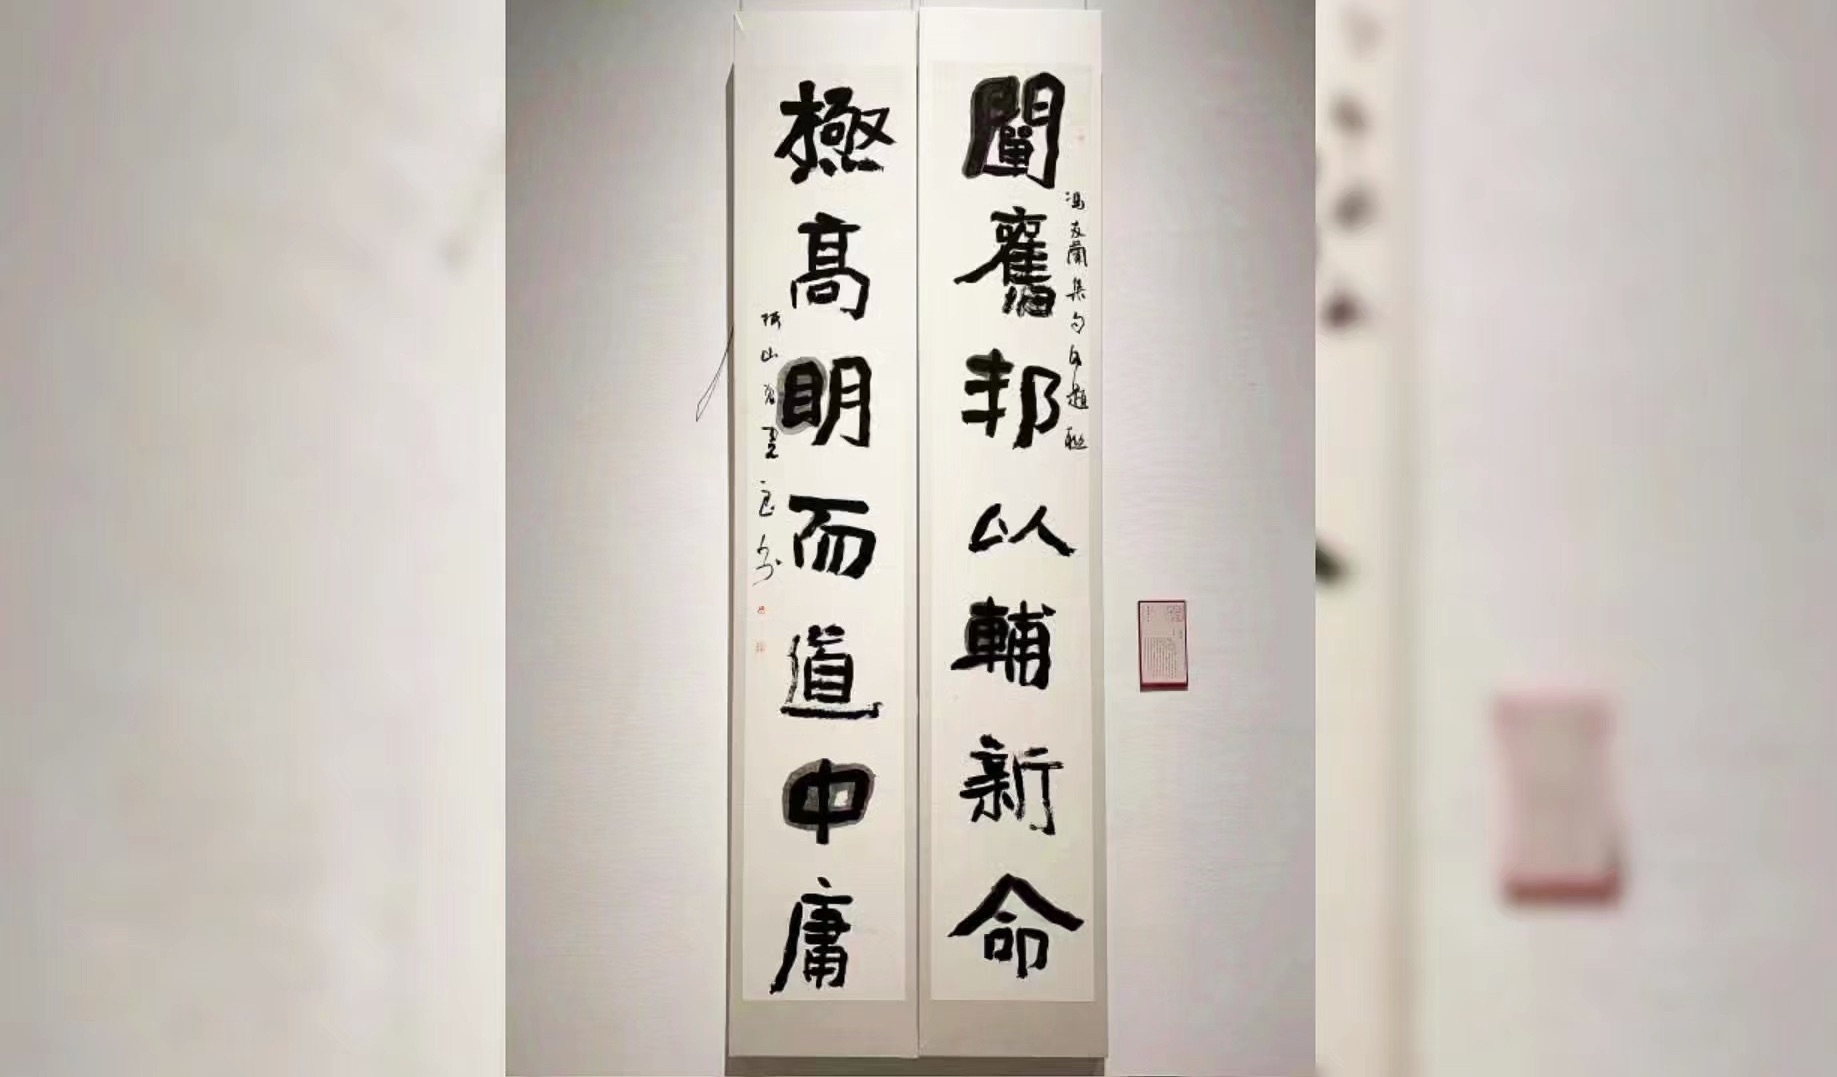 闡舊邦以輔新命
馮友蘭集句自題聯
極高明而道中庸